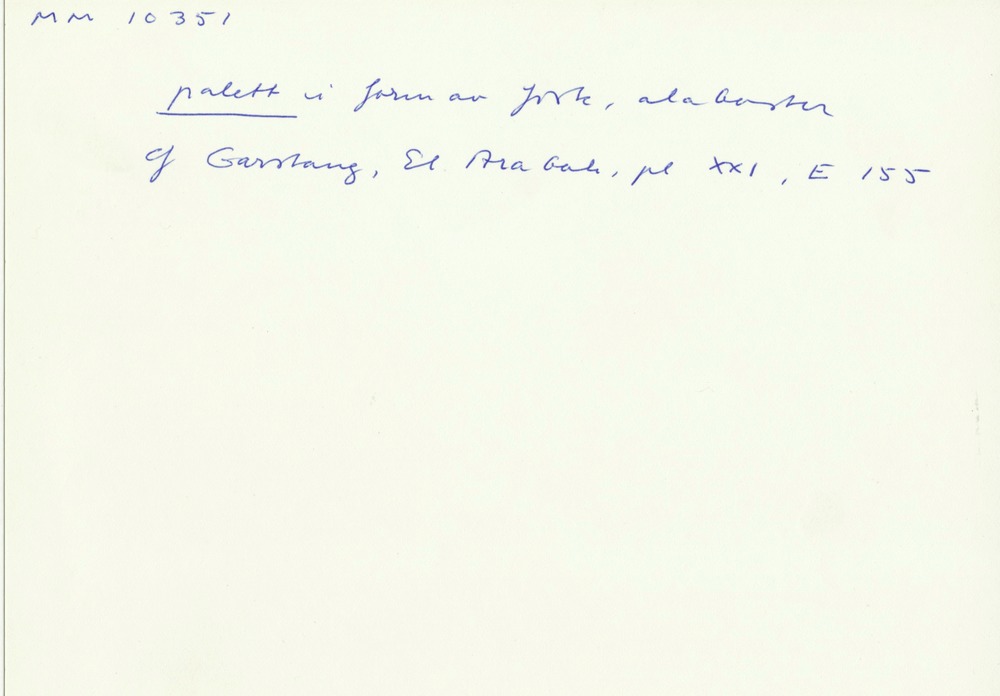 MM 10351
palett i form av fisk, alabaster
cf Garstang, El Arabah, pl XXI, E 155